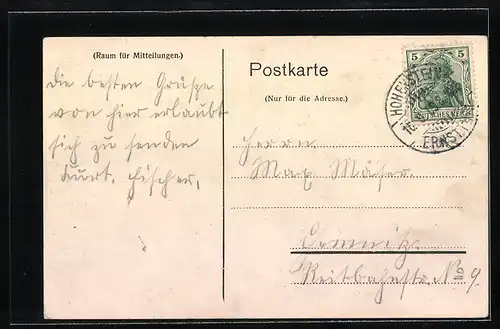 (Raum für Mitteilungen.)
Die besten Grüße
von hier erlaubt
sich zu senden
Kurt. Fischer,
Postkarte
(Nur für die Adresse.)
5 5
HOHENSTEIN
ERNSTT
Herrn
Max
Reitbahnstr. No 9